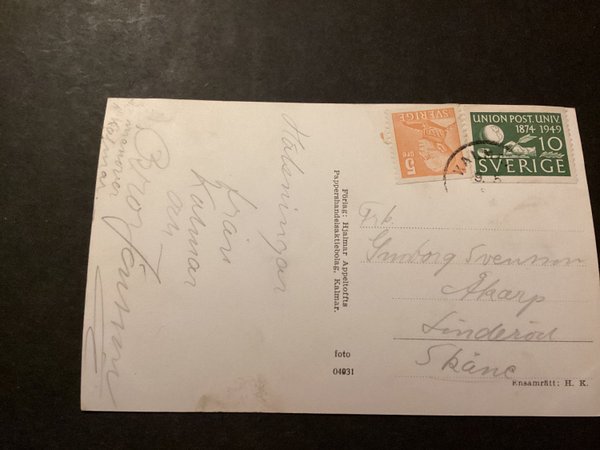 Hälsningar
från
Kalmar
av
Förlag: Hjalmar Appeltoffts
Pappershandelsaktiebolag, Kalmar.
foto
04931
SVERIGE
5
ÖRE
UNION POST. UNIV.
1874 1949
10
SVERIGE
Frk
Svensson
Åkarp
Linderöd
Skåne
Ensamrätt: H. K.